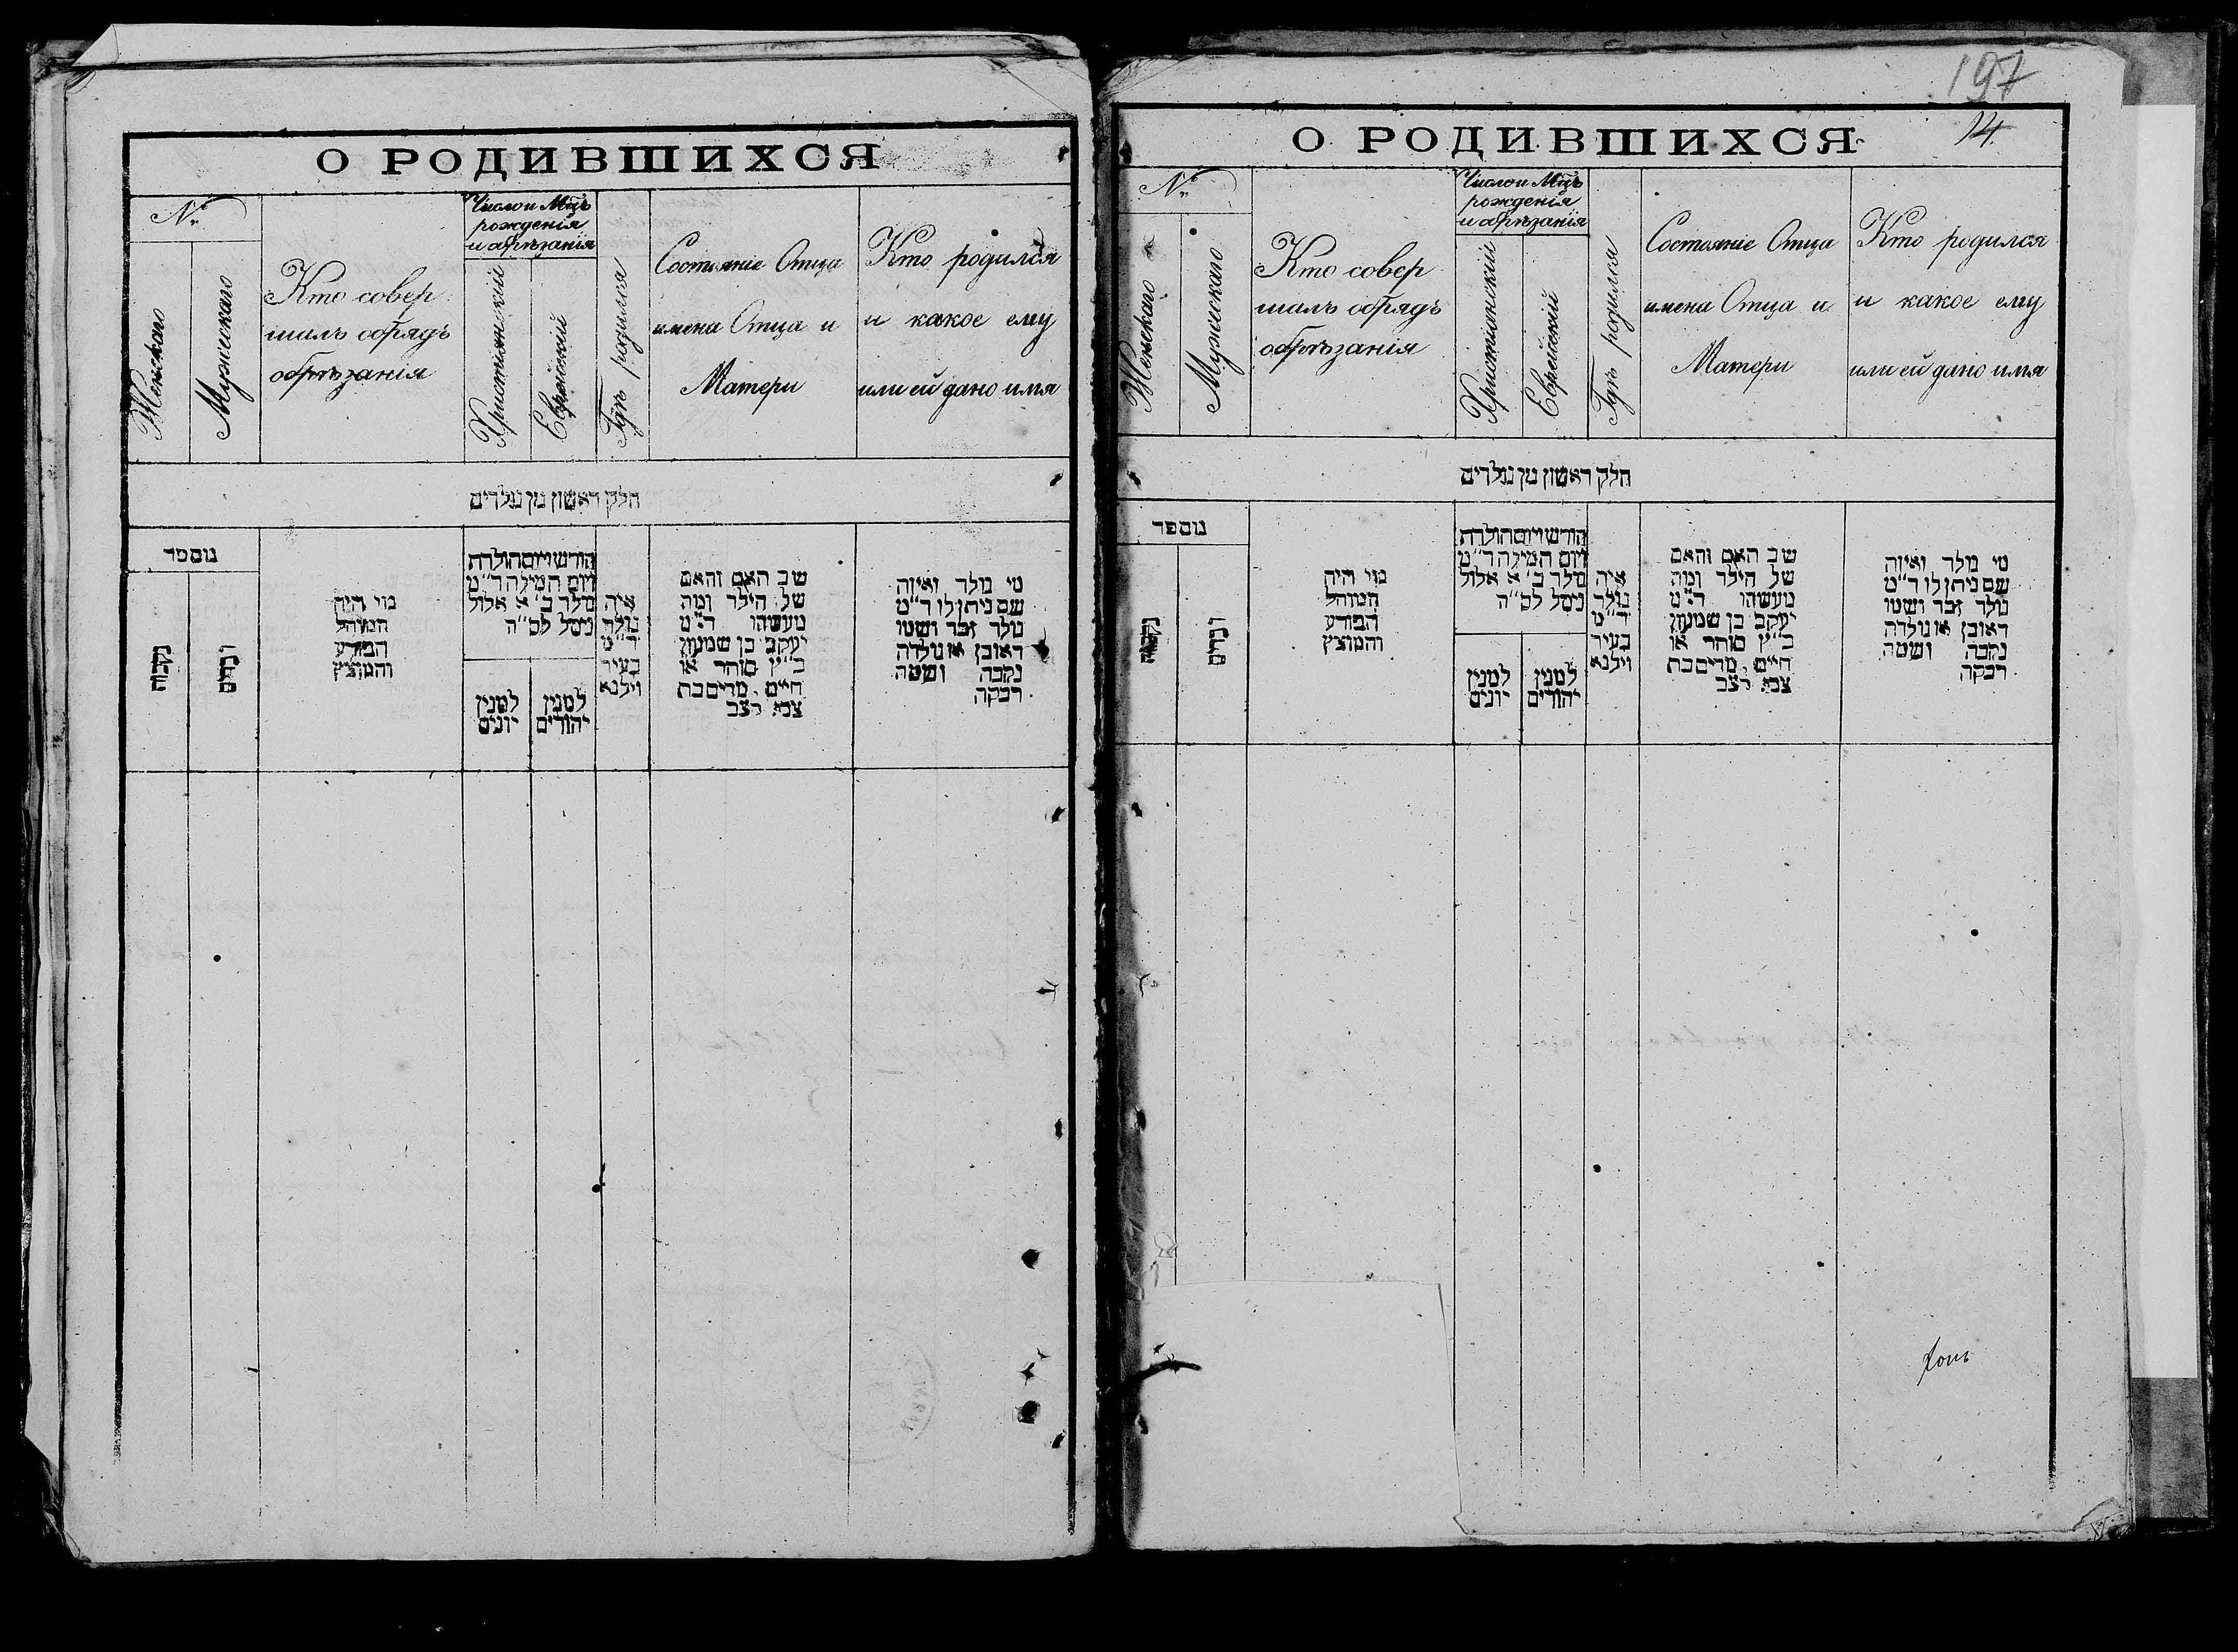 О РОДИВШИХСЯ
№
Женскаго
Мужескаго
Кто совер
шалъ обрядъ
обрѣзанія
Число и Мцъ
рожденія
и обрѣзанія
Христіянскій
Еврейскій
Гдѣ родился
Состояніе Отца
имена Отца и
Матери
Кто родился
и какое ему
или ей дано имя
חלק ראשון מן נולדים
מספר
נקבות
זכרים
מי היה
המוהל
הפורע
והמוצץ
חודש ויום הולדת
ויום המילה ד״מ
מלד ב׳ א אלול
נימל לט״ה
למנין
יונים
למנין
יהודים
איה
נולד
ד״מ
בעיר
וילנא
שב האם והאם
של הילד ומה
מעשהו ד״מ
יעקב בן שמעון
כ״ץ סוחר או
חיים, מרים בת
צבי רצב
מי נולד ואיזה
שם ניתן לו ד״מ
נולד זכר ושמו
ראובן או נולדה
נקבה ושמה
רבקה
197
14
О РОДИВШИХСЯ
№
Женскаго
Мужескаго
Кто совер
шалъ обрядъ
обрѣзанія
Число и Мцъ
рожденія
и обрѣзанія
Христіанскій
Еврейскій
Гдѣ родился
Состояніе Отца
имена Отца и
Матери
Кто родился
и какое ему
или ей дано имя
חלק ראשון מן נולדים
מספר
נקבות
זכרים
מי היה
המוהל
הפורע
והמוצץ
חודש ויום הולדת
ויום המילה ד״מ
מלד ב׳ א אלול
נימל לט״ה
למנין
יונים
למנין
יהודים
איה
נולד
ד״מ
בעיר
וילנא
שב האם והאם
של הילד ומה
מעשהו ד״מ
יעקב בן שמעון
כ״ץ סוחר או
חיים, מרים בת
צבי רצב
מי נולד ואיזה
שם ניתן לו ד״מ
נולד זכר ושמו
ראובן או נולדה
נקבה ושמה
רבקה